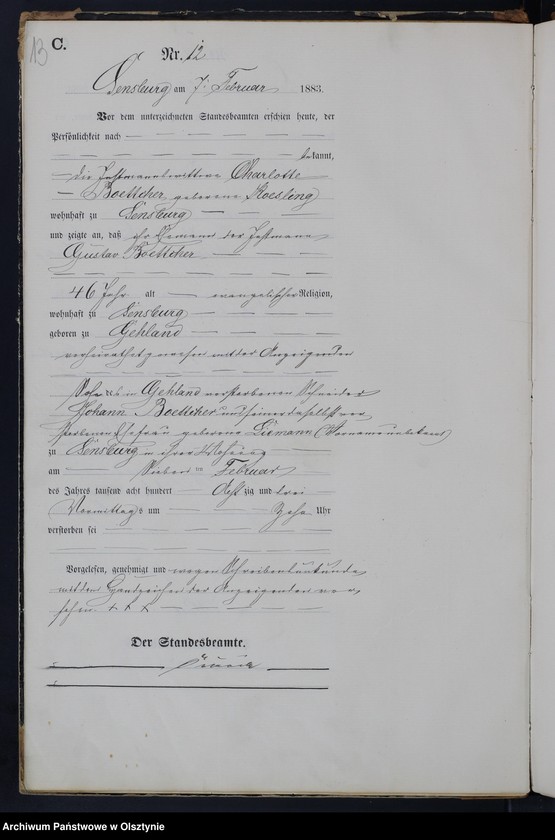 13
C.
Nr. 12
Sensburg am 7. Februar 1883.
Vor dem unterzeichneten Standesbeamten erschien heute, der
Persönlichkeit nach
bekannt,
die Charlotte
Boettcher geborene Koesling
wohnhaft zu Sensburg
und zeigte an, daß ihr Ehemann der
Gustav Boettcher
46 Jahr alt evangelischer Religion,
wohnhaft zu Sensburg
geboren zu Gehland
verheirathet gewesen mit der Anzeigenden
Sohn des in Gehland verstorbenen Schneider
Johann Boettcher und seiner daselbst ver
storbenen Ehefrau geborene (Vorname unbekannt)
zu Sensburg in ihrer Wohnung
am Sieben ten Februar
des Jahres tausend acht hundert Acht zig und drei
Vormittags um Zehn Uhr
verstorben sei
Vorgelesen, genehmigt und wegen Schreibensunkunde
mit dem Handzeichen der Anzeigenden ver
sehen. + + +
Der Standesbeamte.
Archiwum Państwowe w Olsztynie